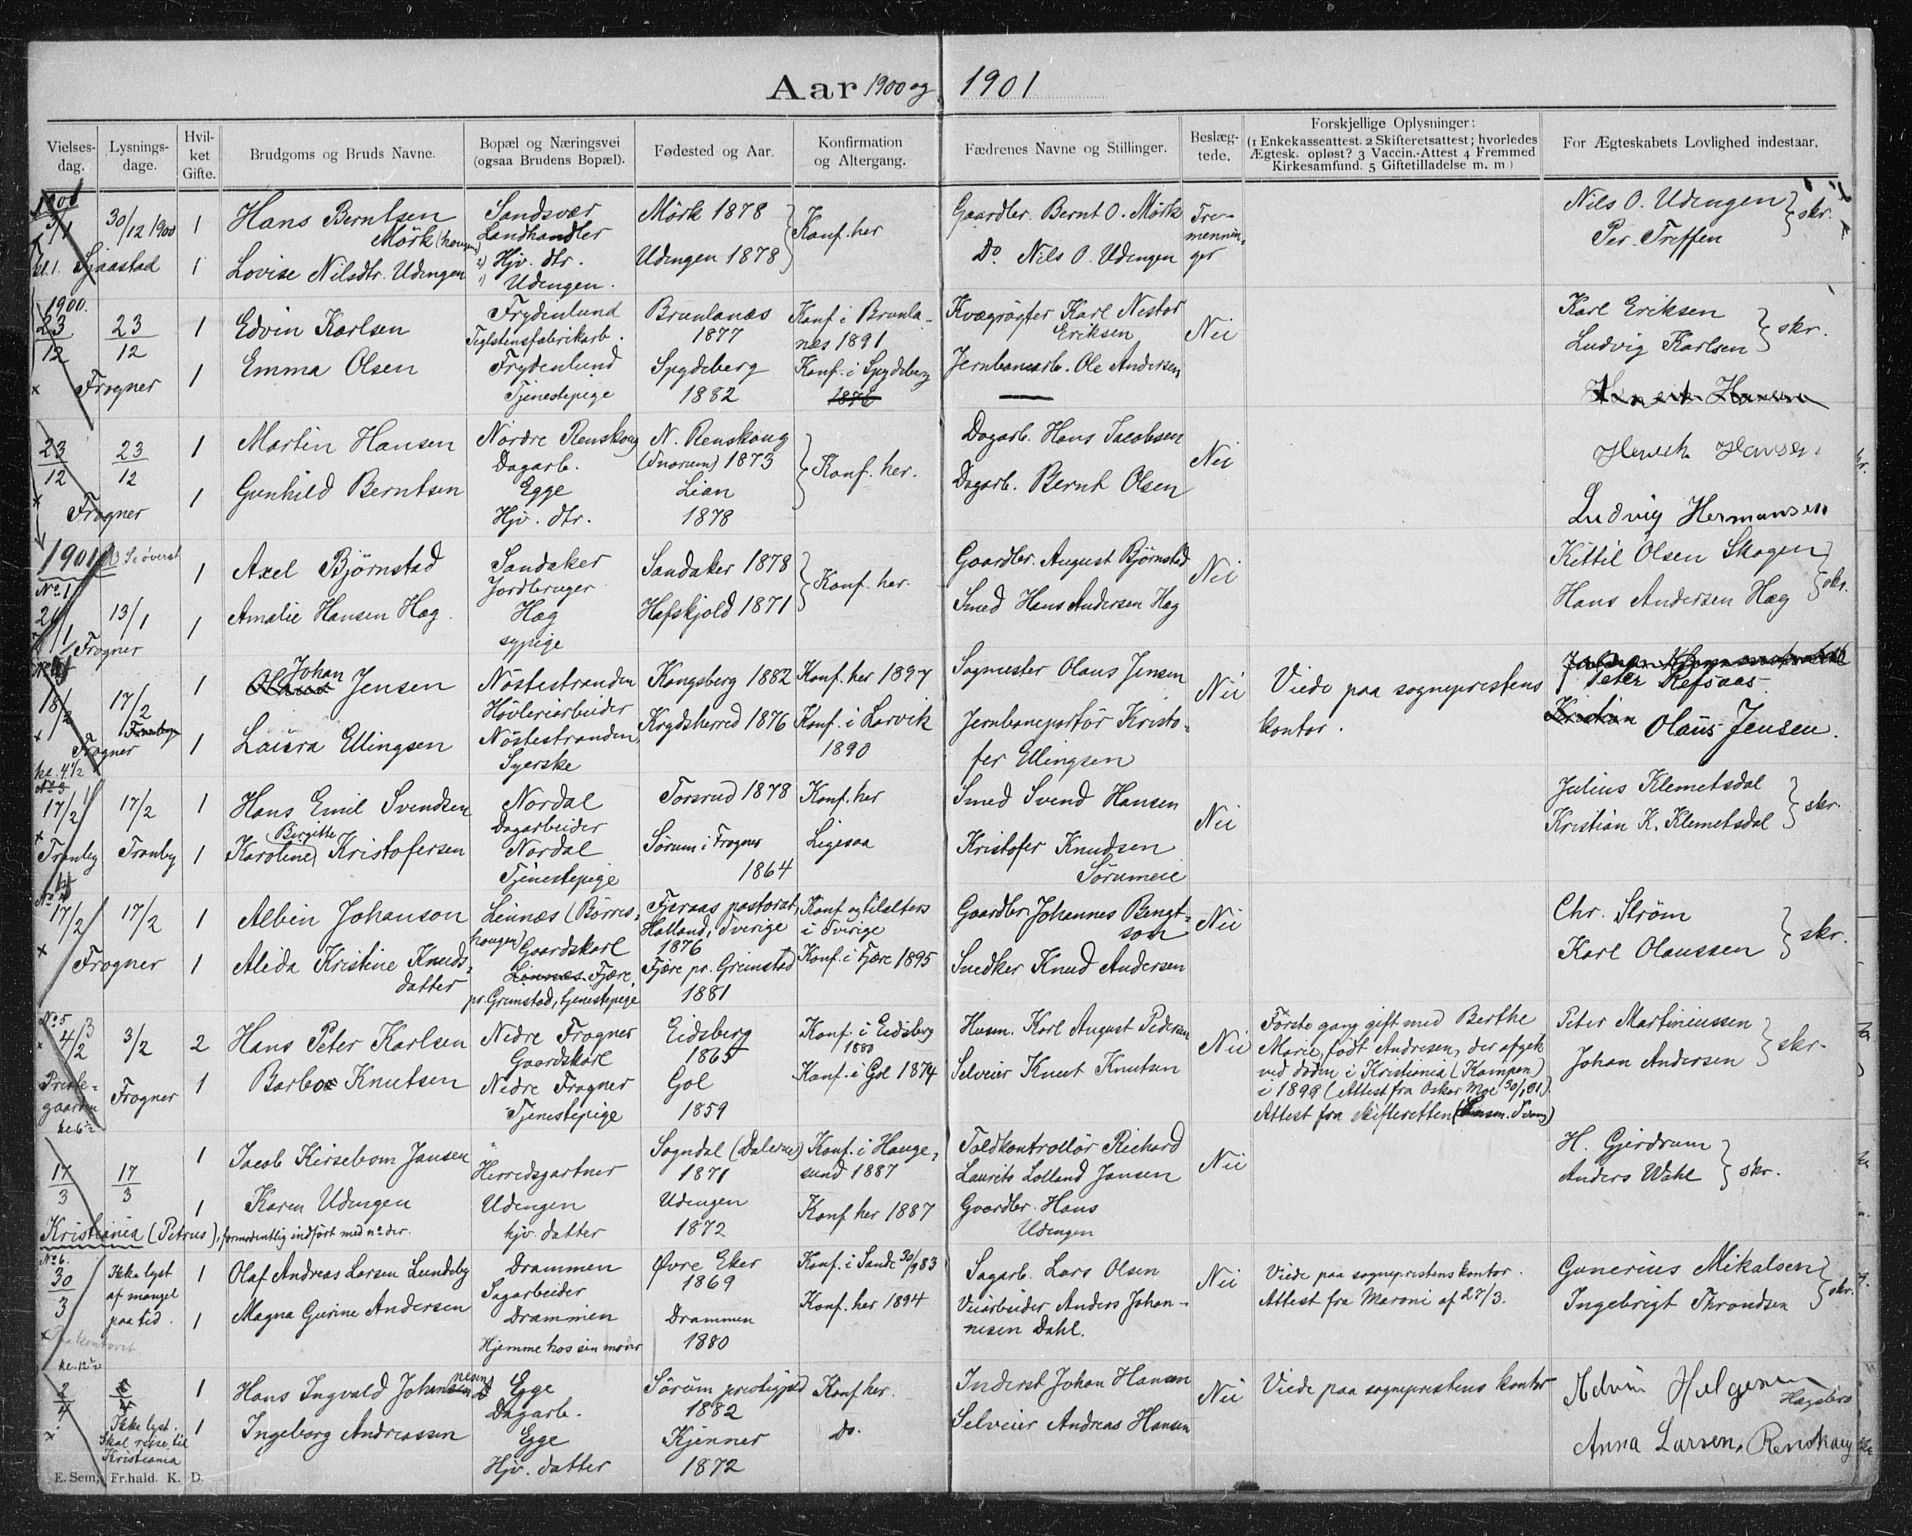 Aar 1900 og 1901
Vielses-dag. Lysnings-dage. Hvil-ket Gifte. Brudgoms og Bruds Navne. Bopæl og Næringsvei (ogsaa Brudens Bopæl). Fødested og Aar. Konfirmation og Altergang. Fædrenes Navne og Stillinger. Beslæg-tede. Forskjellige Oplysninger: (1 Enkekasseattest. 2 Skifteretsattest; hvorledes Ægtesk. opløst? 3 Vaccin.-Attest 4 Fremmed Kirkesamfund. 5 Giftetilladelse m. m.) For Ægteskabets Lovlighed indestaar.
1901
3/1 30/12 1900 1 Hans Berntsen Mörk (haugen) Sandsvær Landhandler Mörk 1878 Konf. her Gaardbr. Bernt O. Mörk Tre-mennin-ger Nils O. Udengen skr.
kl. 1. Sjaastad 1 Lovise Nilsdtr. Udengen Hjv. dtr. Udengen. Udengen 1878 Do. Nils O. Udengen Per Treffen
1900.
23/12 23/12 1 Edvin Karlsen Frydenlund Teglstensfabrikarb. Brunlanæs 1877 Konf. i Brunla-nes 1891 Kvægrøgter Karl Nestor Eriksen Nei Karl Eriksen skr.
× Frogner 1 Emma Olsen Frydenlund Tjenestepige Spydeberg 1882 Konf. i Spydeberg 1876 Jernbanearb. Ole Andersen Ludvig Karlsen
23/12 23/12 1 Martin Hansen Nordre Renskoug Dagarb. N. Renskoug (Snorum) 1873 Konf. her. Dagarb. Hans Jacobsen Nei Henrik Hansen
× Frogner 1 Gunhild Berntsen Egge Hjv. dtr. Lian 1878 Dagarb. Bernt Olsen Ludvig Hermansen
1901
No 1 13/1 1 Axel Björnstad Sandaker Jordbruger Sandaker 1878 Konf. her. Gaardbr. August Björnstad Nei Kittil Olsen Skogen skr.
Frogner 1 Amalie Hansen Hæg Hæg sypige Hafskjold 1871 Smed Hans Andersen Hæg Hans Andersen Hæg
18/2 17/2 1 Olaus Johan Jensen Nöstestranden Hövleriarbeider Kongsberg 1882 Konf. her 1897 Sagmester Olaus Jensen Nei Viede paa sogneprestens kontor. Peter Refsaas.
Frogner 1 Laura Ellingsen Nöstestranden, Syerske Krydsherred 1876 Konf. i Larvik 1890 Jernbaneportör Kristo-fer Ellingsen Kristian Olaus Jensen.
kl. 4 1/2
No 3
17/2 17/2 1 Hans Emil Svendsen Nordal Dagarbeider Torsrud 1878 Konf. her Smed Svend Hansen Nei Julius Klemetsdal skr.
× Tranby Tranby 1 Karoline (Birgitte) Kristofersen Nordal Tjenestepige Sörum i Frogner 1864 Ligesaa Kristofer Knudsen Sörumeie Kristian K. Klemetsdal
No 4
17/2 17/2 1 Albin Johanson Linnæs (Börres-haugen) Gaardskarl Fjæraas pastorat, Halland, Sverige 1876 Konf. og tilalters i Sverige Gaardbr. Johannes Bengt-son Nei Chr. Ström skr.
× Frogner 1 Alida Kristine Knuds-datter Linnæs Fjære, pr. Grimstad, tjenestepige Fjære pr. Grimstad 1881 Konf. i Fjære 1895 Snedker Knud Andersen Karl Olaussen
No 5
4/3 3/2 2 Hans Peter Karlsen Nedre Frogner Gaardskarl Eidsberg 1865 Konf. i Eidsberg 1880 Husm. Karl August Pedersen Nei Förste gang gift med Berthe Marie, födt Andresen, der afgik ved döden i Kristiania (Kampen) i 1899 (Attest fra Oskar Moe 30/1 01). Attest fra skifteretten Peter Martiniussen skr.
Preste-gaarden kl. 6 1/2 Frogner 1 Barbo Knutsen Nedre Frogner Tjenestepige Gol 1859 Konf. i Gol 1874 Selveier Knut Knutsen Johan Andersen
17/3 17/3 1 Jacob Kirsebom Jansen " Herredsgartner Sogndal (Dalerne) 1871 Konf. i Hauge-sund 1887 Toldkontrollör Richard Laurits Lolland Jansen Nei H. Gjerdrum skr.
1 Karen Udengen Udengen hjv. datter Udengen 1872 Konf. her 1887 Gaardbr. Hans Udengen Anders Wahl
Kristiania (Petrus), formodentlig indfört med no der.
No 6.
30/3 Ikke lyst af mangel paa tid. 1 Olaf Andreas Larsen Lundeby Drammen Sagarbeider Øvre Eker 1869 Konf. i Sande 30/9 83 Sagarb. Lars Olsen Nei Viede paa sogneprestens kontor. Attest fra Maroni af 27/3. Gunerius Mikalsen skr.
1 Magna Gurine Andersen Drammen Hjemme hos sin moder Drammen 1880 Konf. her 1894 Veiarbeider Anders Johan-nesen Dahl. Ingebrigt Throndsen
kl. 12 1/2
2/4 1 Hans Ingvald Johannesen Egge Dagarb. Sörum prestegjeld 1882 Konf. her. Inderst Johan Hansen Nei Viede paa sogneprestens kontor Edvin Helgesen Hagsbro
× Ikke lyst. Skal reise til Kristiania 1 Ingeborg Andreassen Egge Hjv. datter Kjenner 1872 Do. Selveier Andreas Hansen Anna Larsen, Renskoug
E. Sem, Fr.hald. K. D.